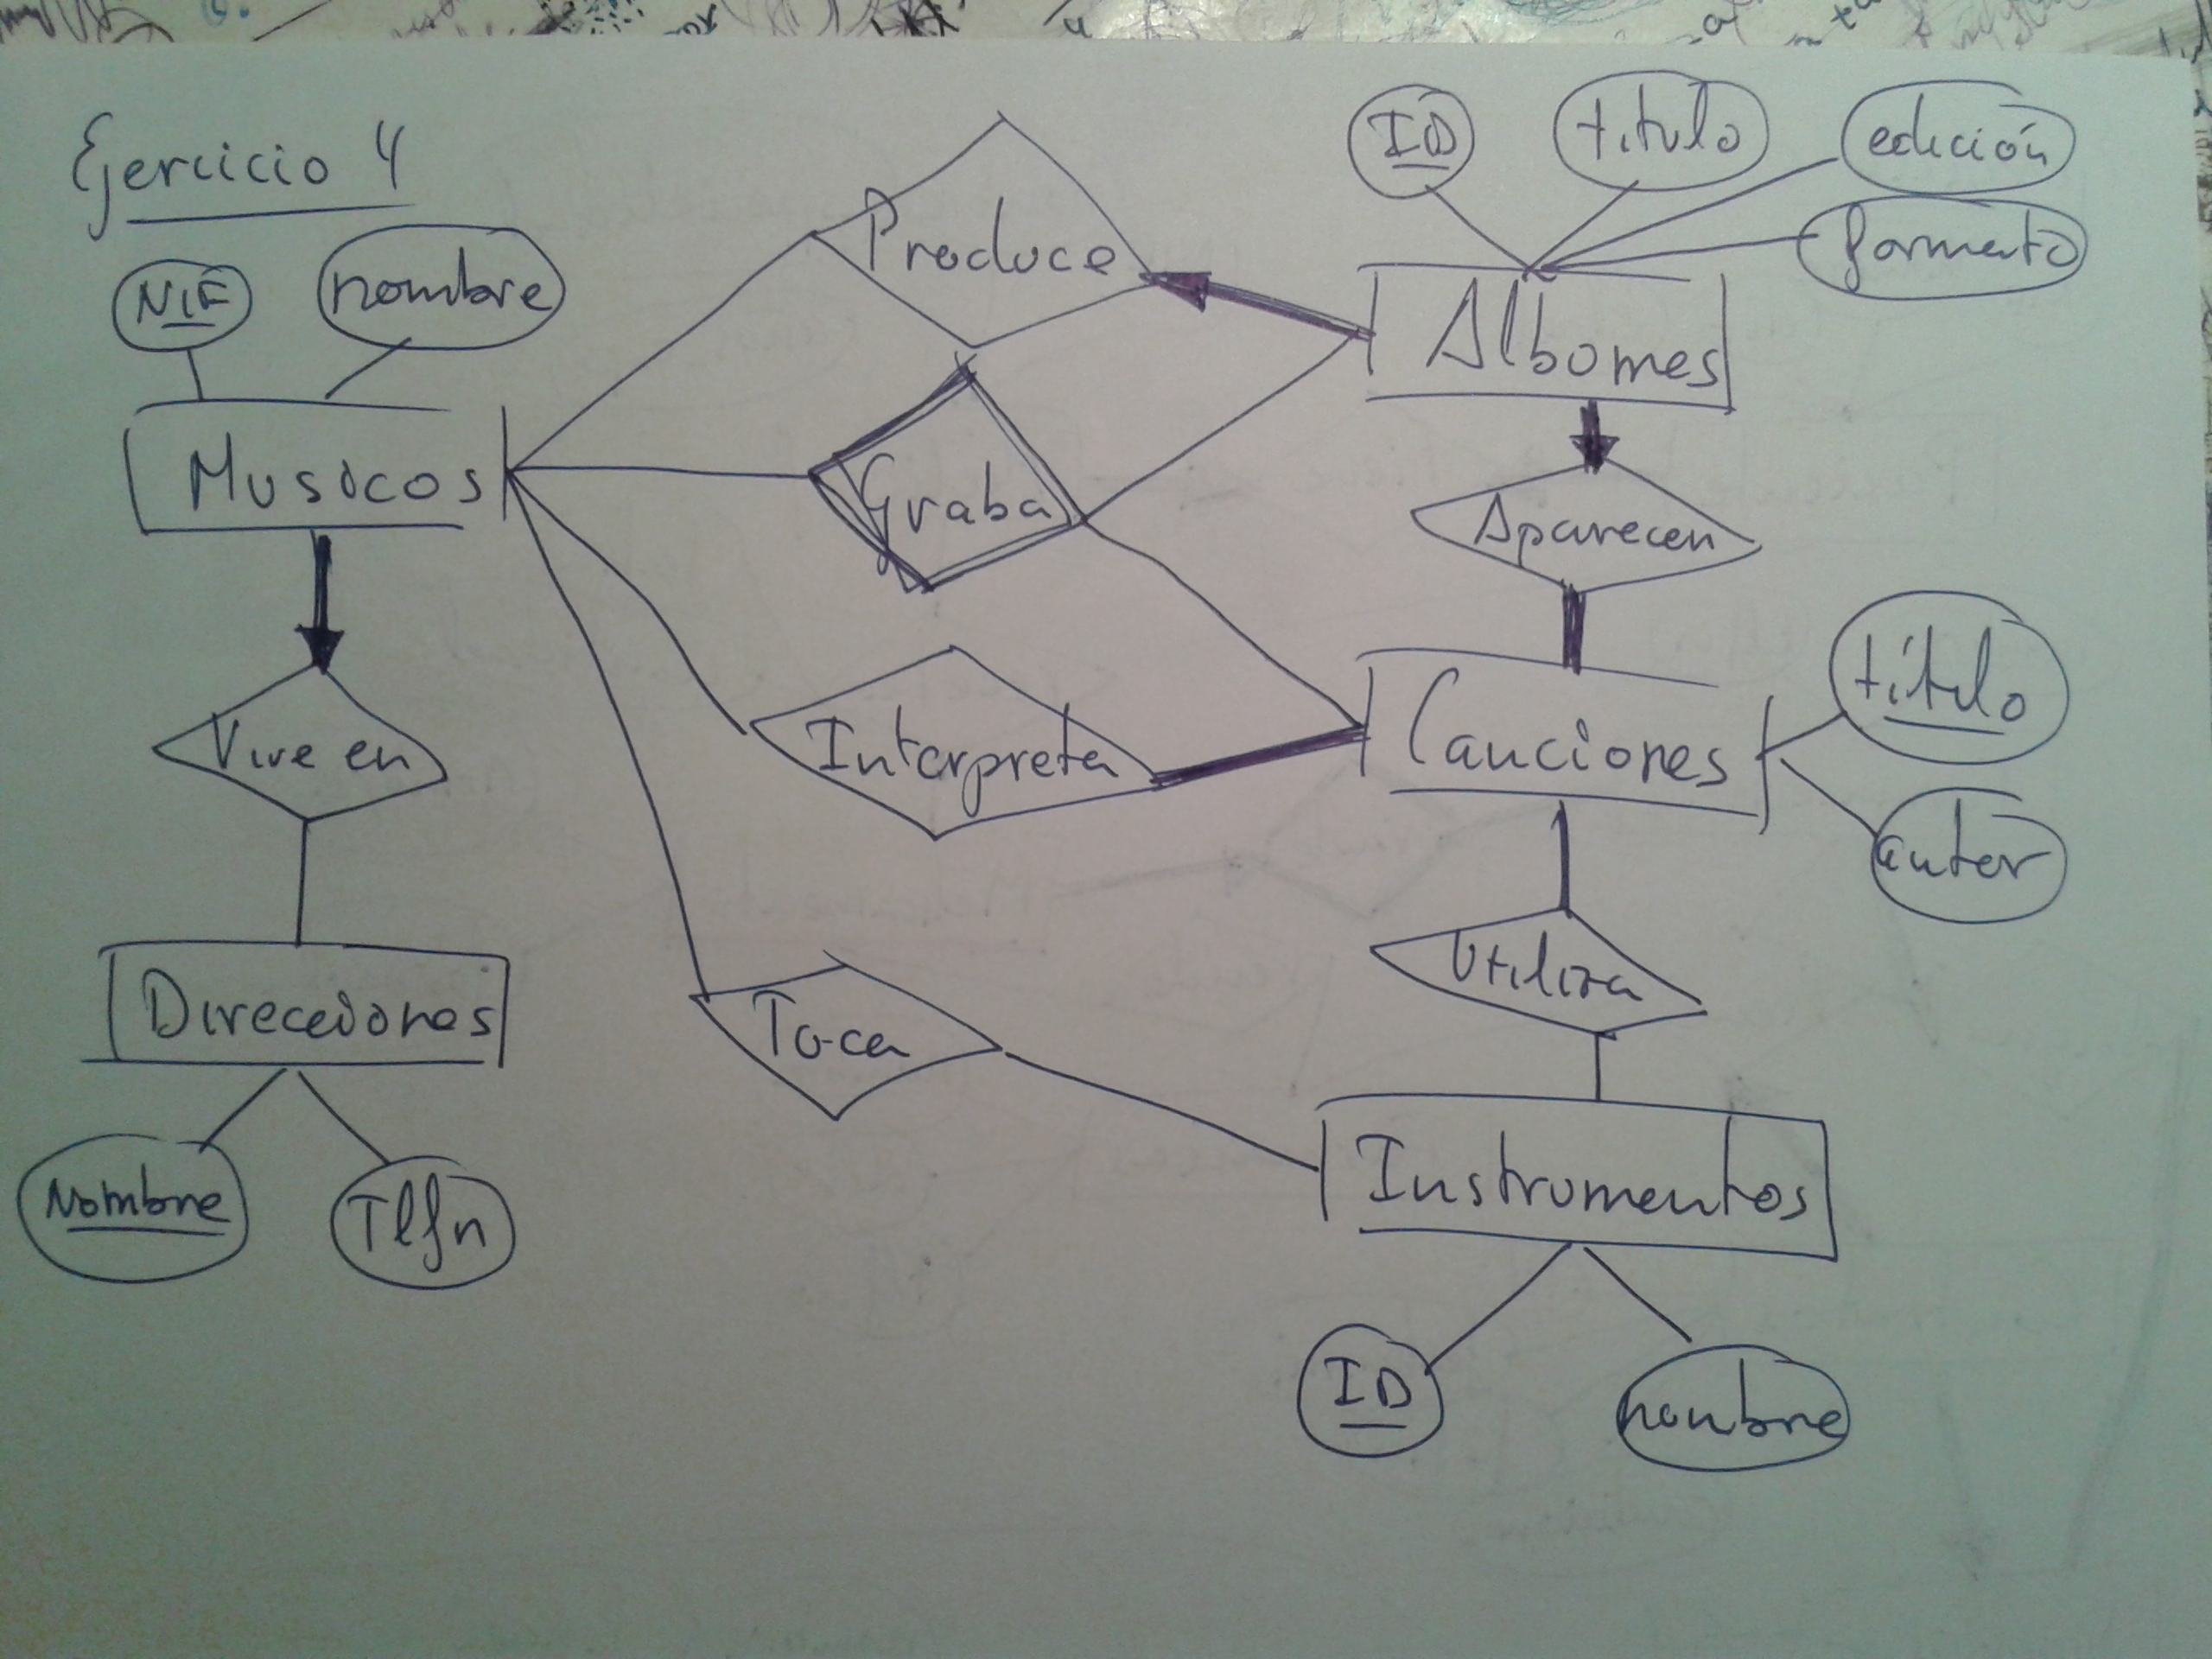 Ejercicio 4
NIF
nombre
Musicos
Vive en
Direcciones
Nombre
Tlfn
Produce
Graba
Interpreta
Toca
ID
titulo
edición
formato
Albomes
Aparecen
Canciones
título
autor
Utiliza
Instrumentos
ID
nombre